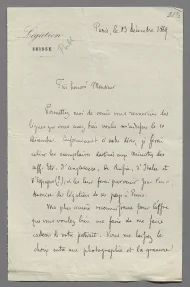 215
Légation
Suisse
Paris, le 13 Décembre 1889
Très honoré Monsieur
Permettez moi de venir vous remercier des
lignes que vous avez bien voulu m'adresser le 10
décembre. Conformément à votre désir, je ferai
retirer les exemplaires destinés aux Ministres des
aff. Etr. d'Angleterre, de Russie, d'Italie et
d'Espagne (?), et les leur ferai parvenir par l'en-
tremise des Légations de ces pays à Paris.
Mes plus sincères remerciements pour l'offre
que vous voulez bien me faire de me faire
cadeau de votre portrait. Vous me laissez le
choix entre une photographie et la gravure